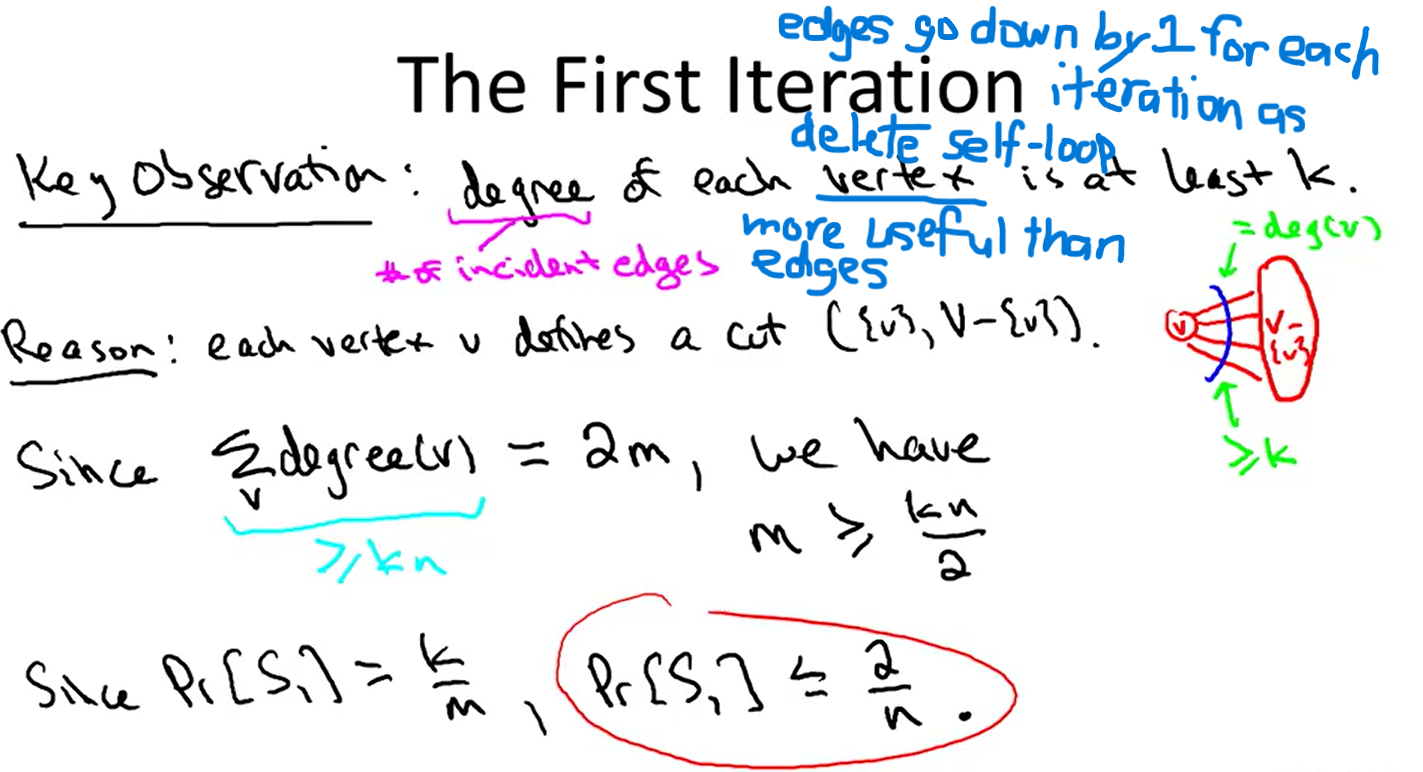 edges go down by 1 for each
The First Iteration
iteration as
delete self-loop
Key Observation: degree of each vertex is at least k.
# of incident edges
more useful than
edges
= deg(v)
Reason: each vertex v defines a cut ({v}, V-{v}).
v
V-
{v}
≥k
Since Σ_v degree(v) = 2m, we have
≥kn
m ≥ kn/2
Since Pr[S₁] = k/m, Pr[S₁] ≤ 2/n.